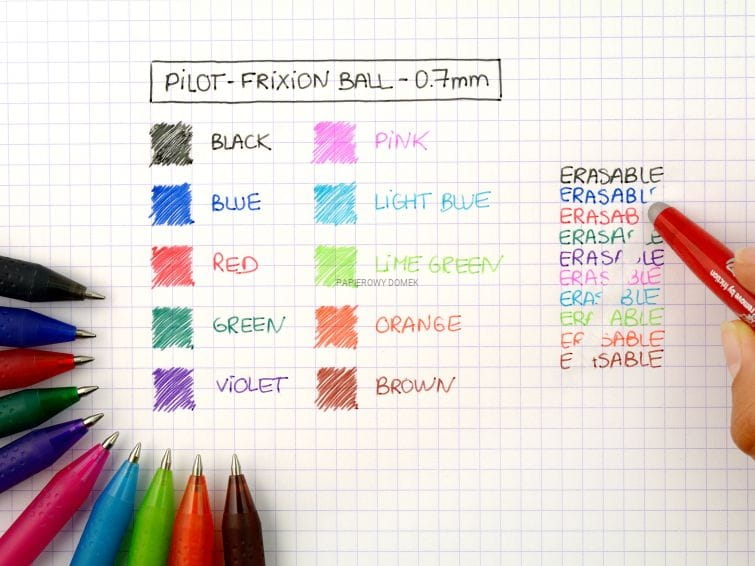 PiLOT-FRiXiON BALL - 0.7mm
BLACK
BLUE
RED
GREEN
ViOLET
PiNK
LiGHT BLUE
LiME GREEN
ORANGE
BROWN
PAPIEROWY DOMEK
ERASABLE
ERASABL
ERASAB
ERASA E
ERAS LE
ERAS BLE
ERAS BLE
ER ABLE
ER SABLE
E SABLE
remove by friction